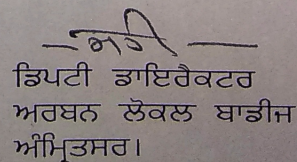 ਸਹੀ
ਡਿਪਟੀ ਡਾਇਰੈਕਟਰ
ਅਰਬਨ ਲੋਕਲ ਬਾਡੀਜ
ਅੰਮ੍ਰਿਤਸਰ।